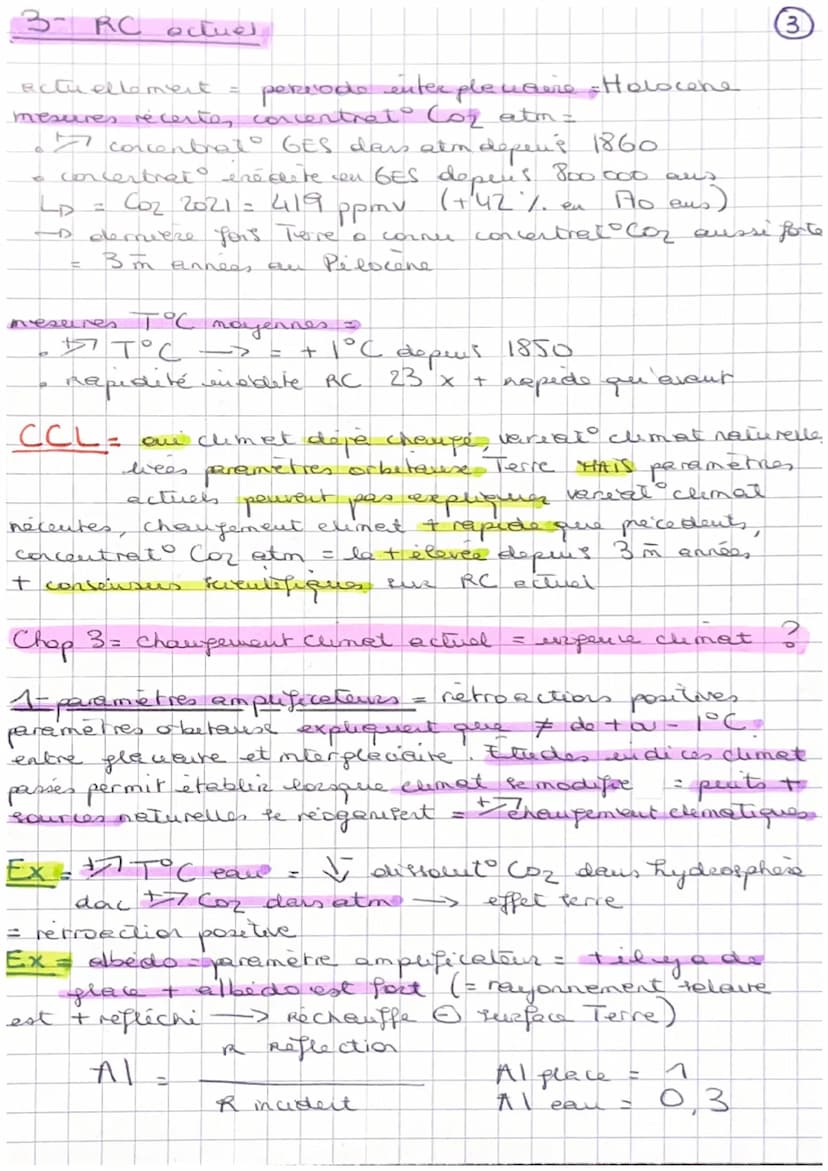 3- RC actuel
3
actuellement = periode interglaciaire = Holocène
mesures récentes concentrat° Co2 atm =
• +↗ concentrat° GES dans atm depuis 1860
• concentrat° inédite en GES depuis 800 000 ans
↳ = Co2 2021 = 419 ppmv (+42 % en 170 ans)
→ dernière fois Terre a connu concentrat° Co2 aussi forte
= 3 m̄ années au Pliocène
mesures T°C moyennes =
• +↗ T°C → = + 1°C depuis 1850
• Rapidité inédite RC 23 x + rapide qu'avant
CCL = oui climat déjà changé, variat° climat naturelle
liées paramètres orbitaux Terre MAIS paramètres
actuels peuvent pas expliquer variat° climat
récentes, changement climat + rapide que précédents,
concentrat° Co2 atm = la + élevée depuis 3 m̄ années
+ consensus scientifiques sur RC actuel
Chap 3 = changement climat actuel = urgence climat ?
1- paramètres amplificateurs = rétroactions positives
paramètres orbitaux expliquent que ≠ de + ou - 1°C
entre glaciaire et interglaciaire. Etudes indices climat
passés permit établir lorsque climat se modifie = puits +
sources naturelles se réogansent = +↗ changement climatiques
Ex = +↗ T°C eau = ↓ dissolut° Co2 dans hydrosphère
donc +↗ Co2 dans atm → effet serre
= rétroaction positive
Ex = albédo = paramètre amplificateur = + il y a de
glace + albédo est fort (= rayonnement solaire
est + réfléchi → réchauffe ⊖ surface Terre)
Al = R Réflection / R incident
Al glace = 1
Al eau = 0,3